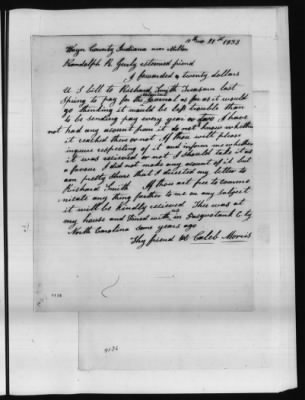 11th mo 21st 1833
Wayn County Indiana near Milton
Randolph R Gurly esteemed friend
I forwarded a twenty dollars
U S bill to Richard Smith Treasurer last
Spring to pay for the Journal as far as it would
go thinking it would be less trouble than
to be sending pay every year or two I have
not had any account from it do not know whether
it reached thee or not If thou will please
inquire respecting of it and inform me whether
it was received or not I should take it as
a favour I did not make any account of it but
am pretty shure that I directed my letter to
Richard Smith If thou art free to commu
nicate any thing further to me on any subject
it will be kindly received Thou was at
my house and Dined with us in Pasquotank C ty
North Carolina some years ago
Thy friend &c Caleb Morris
9136
9136